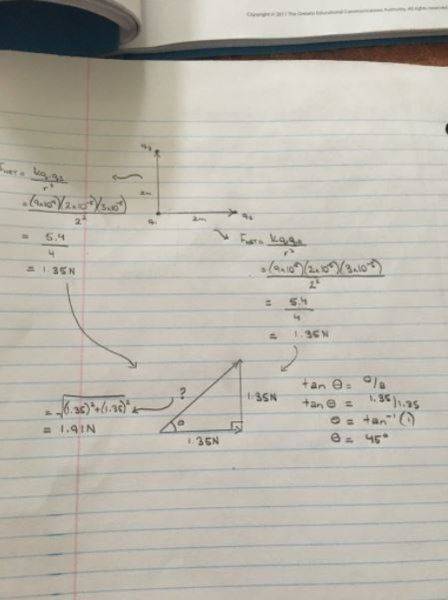 Copyright © 2011 The Ontario Educational Communications Authority. All rights
q₃
2m
q₁ 2m q₂
FNET = kq₁q₃
r²
= (9x10⁹)(2x10⁻⁵)(3x10⁻⁵)
2²
= 5.4
4
= 1.35N
FNET = kq₁q₂
r²
= (9x10⁹)(2x10⁻⁵)(3x10⁻⁵)
2²
= 5.4
4
= 1.35N
= √(1.35)²+(1.35)²
= 1.91N
?
θ
1.35N
1.35N
tan θ = o/a
tan θ = 1.35/1.35
θ = tan⁻¹(1)
θ = 45°